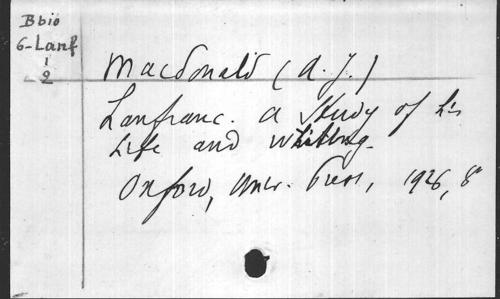 Bbio
6-Lanf
1
2
Macdonald (A. J.)
Lanfranc. A Study of his
Life and Writing.
Oxford, Univ. Press, 1926, 8°